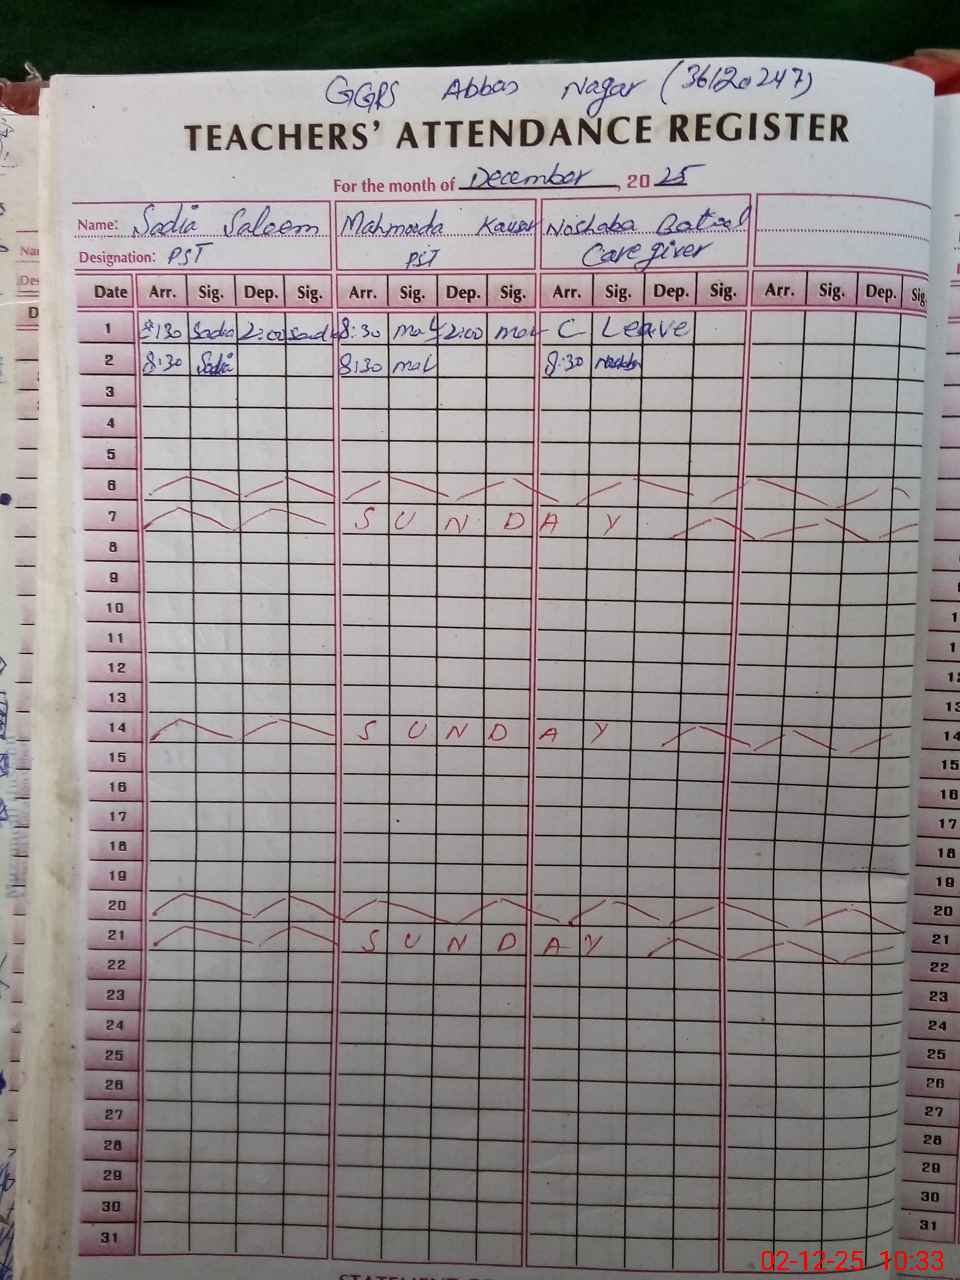 GGPS Abbas Nagar (36120247)
TEACHERS' ATTENDANCE REGISTER
For the month of December, 2025
Name: Sadia Saleem Mahmooda Kausar Noshaba Batool
Designation: PST PST Care giver
Date Arr. Sig. Dep. Sig. Arr. Sig. Dep. Sig. Arr. Sig. Dep. Sig. Arr. Sig. Dep. Sig
1 8:30 Sadia 2:00 Sadi 8:30 2:00 C Leave
2 8:30 Sadia 8:30 8:30
3
4
5
6
7 SUNDAY
8
9
10
11
12
13
14 SUNDAY 14
15 15
16 16
17 17
18 18
19 19
20 20
21 SUNDAY 21
22 22
23 23
24 24
25 25
26 26
27 27
28 28
29 29
30 30
31 31
02-12-25 10:33